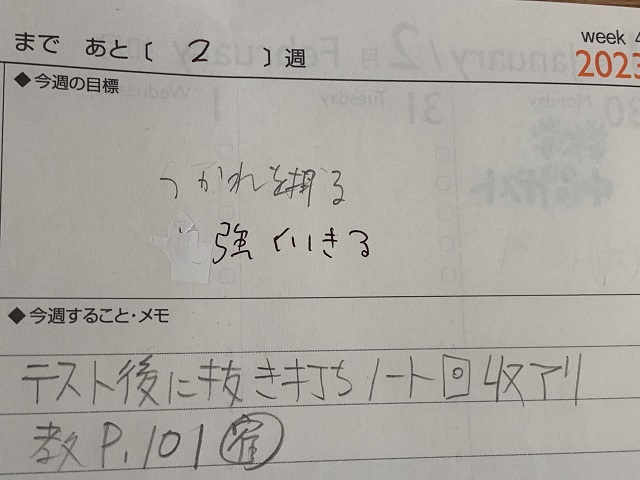 まで あと〔 2 〕週
week 4
2023
◆今週の目標
つかれを取る
強くいきる
◆今週すること・メモ
テスト後に抜き打ちノート回収アリ
教P.101㊙